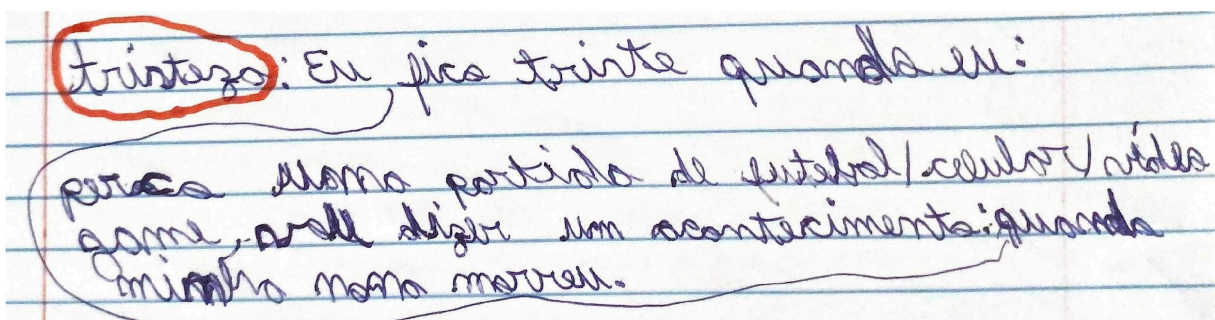 tristeza: Eu fico triste quando eu:
perco uma partida de futebol/
game, um acontecimento: quando
minha nona morreu.